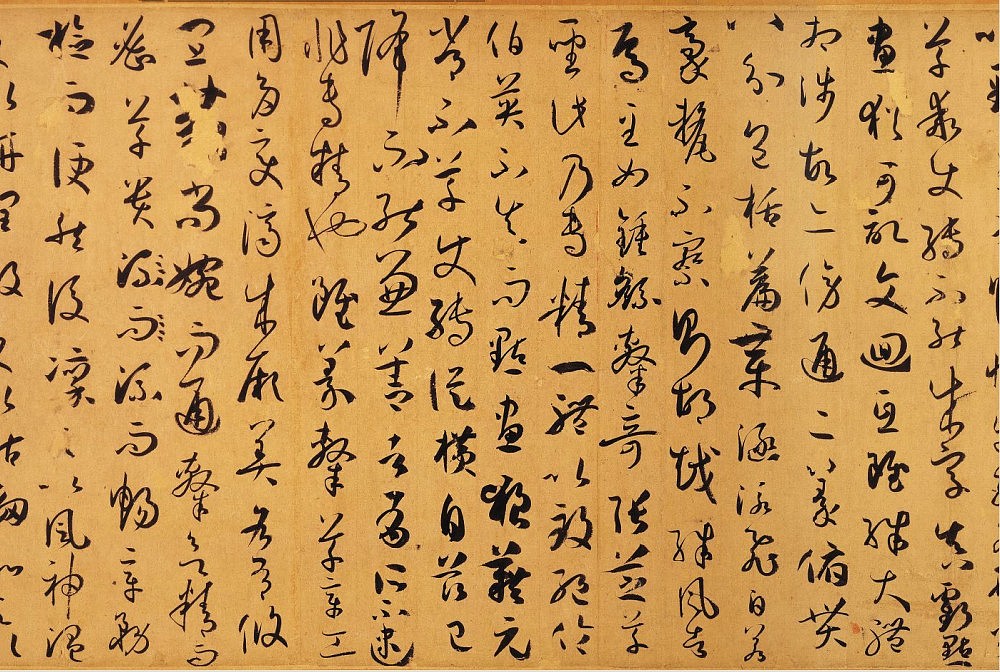 草乖使轉不能成字真虧點
畫猶可記文迴互雖殊大體
相涉故亦傍通二篆俯貫
八分包括篇章涵泳飛白若
豪釐不察則胡越殊風者
焉至如鍾繇隸奇張芝草
聖此乃專精一體以致絕倫
伯英不真而點畫狼藉元
常不草使轉縱橫自茲已
降不能兼善者有所不逮
非專精也雖篆隸草章工
用多變濟成厥美各有攸
宜篆尚婉而通隸欲精而
密草貴流而暢章務
檢而便然後凜之以風神溫